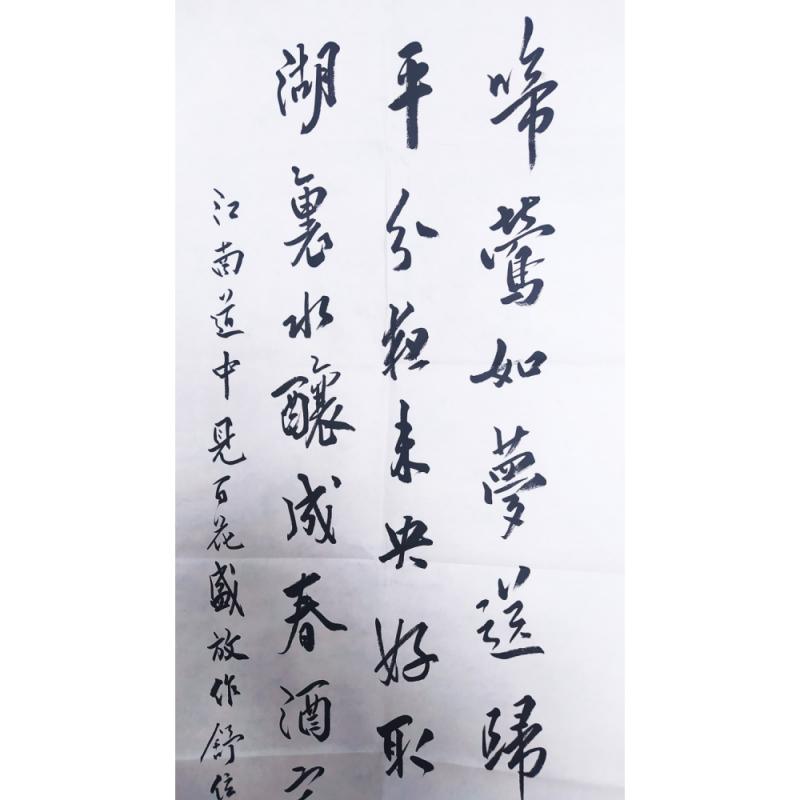 啼鶯如夢送歸
平分秋未央好取
湖裏水釀成春酒
江南道中見百花盛放作舒位